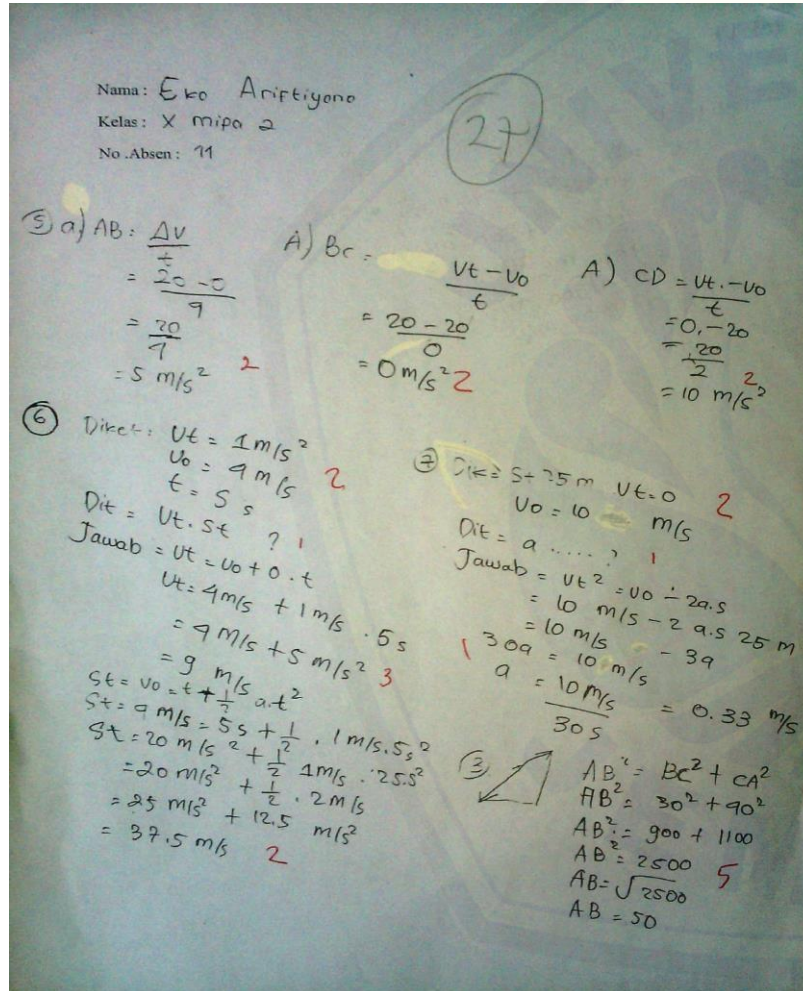 Nama : Eko Ariftiyono
Kelas : X mipa 2
No .Absen : 11
27
5 a) AB : Δv/t
= 20 - 0/4
= 20/4
= 5 m/s² 2
A) BC = Vt - Vo/t
= 20 - 20/0
= 0 m/s² 2
A) CD = Vt. - Vo/t
= 0, - 20
= 20/2
= 10 m/s² 2
6 Diket : Vt = 1 m/s²
Vo = 4 m/s 2
t = 5 s
Dit = Vt. St ? 1
Jawab = Vt = Vo + 0 . t
Vt = 4 m/s + 1 m/s . 5 s
= 4 m/s + 5 m/s² 3
= 9 m/s
St = Vo = t + 1/2 a.t²
St = 4 m/s = 5 s + 1/2 . 1 m/s. 5 s²
St = 20 m/s² + 1/2 1 m/s . 25 s²
= 20 m/s² + 1/2 . 2 m/s
= 25 m/s² + 12.5 m/s²
= 37.5 m/s 2
7 Dik = St 25 m Vt = 0 2
Vo = 10 m/s
Dit = a ..... ? 1
Jawab = Vt² = Vo - 2a.s
= 10 m/s - 2 a.s 25 m
= 10 m/s - 3a
1 30a = 10 m/s
a = 10 m/s / 30 s = 0.33 m/s
3 AB² = BC² + CA²
AB² = 30² + 40²
AB² = 900 + 1100
AB² = 2500 5
AB = √2500
AB = 50